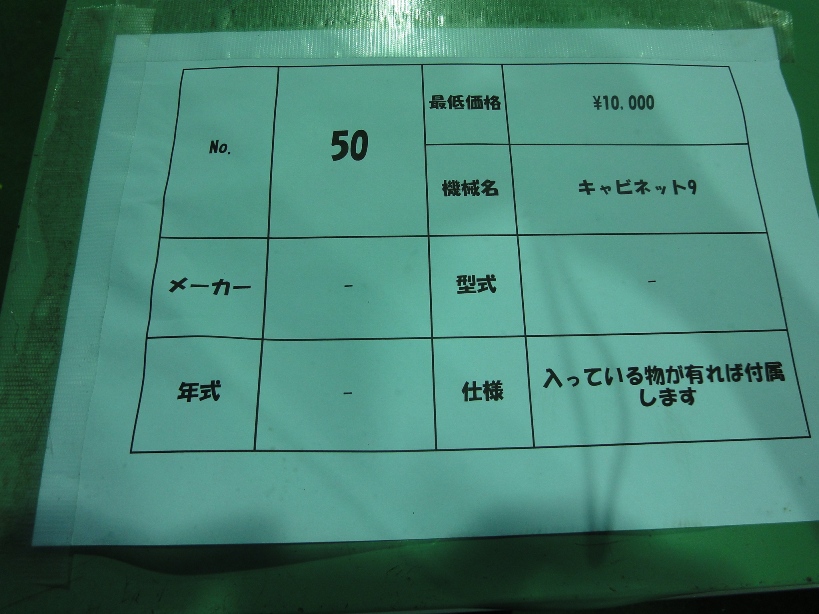 No.
50
最低価格
¥10.000
機械名
キャビネット9
メーカー
-
型式
-
年式
-
仕様
入っている物が有れば付属
します